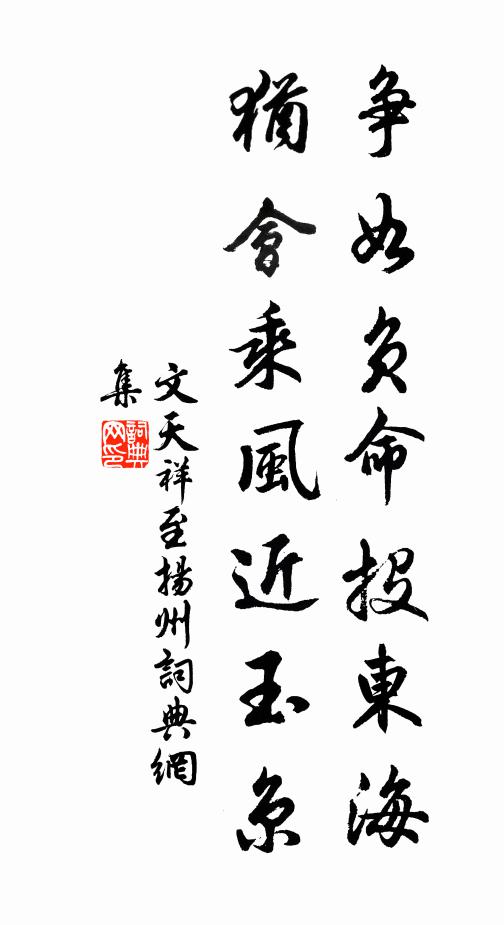 争如負命投東海
猶會乘風近玉京
文天祥至揚州詞典網
集
詞典
网印